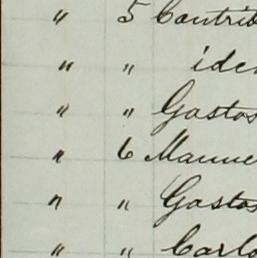 " 5 Contrib
" " iden
" " Gastos
" 6 Manue
" " Gastos
" " Carlo